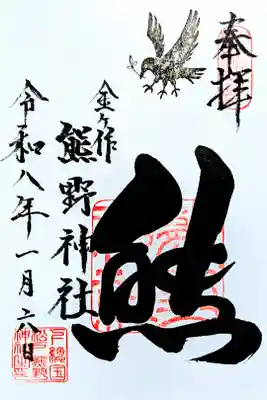 奉拝
熊
金ヶ作
熊野神社
令和八年一月六日